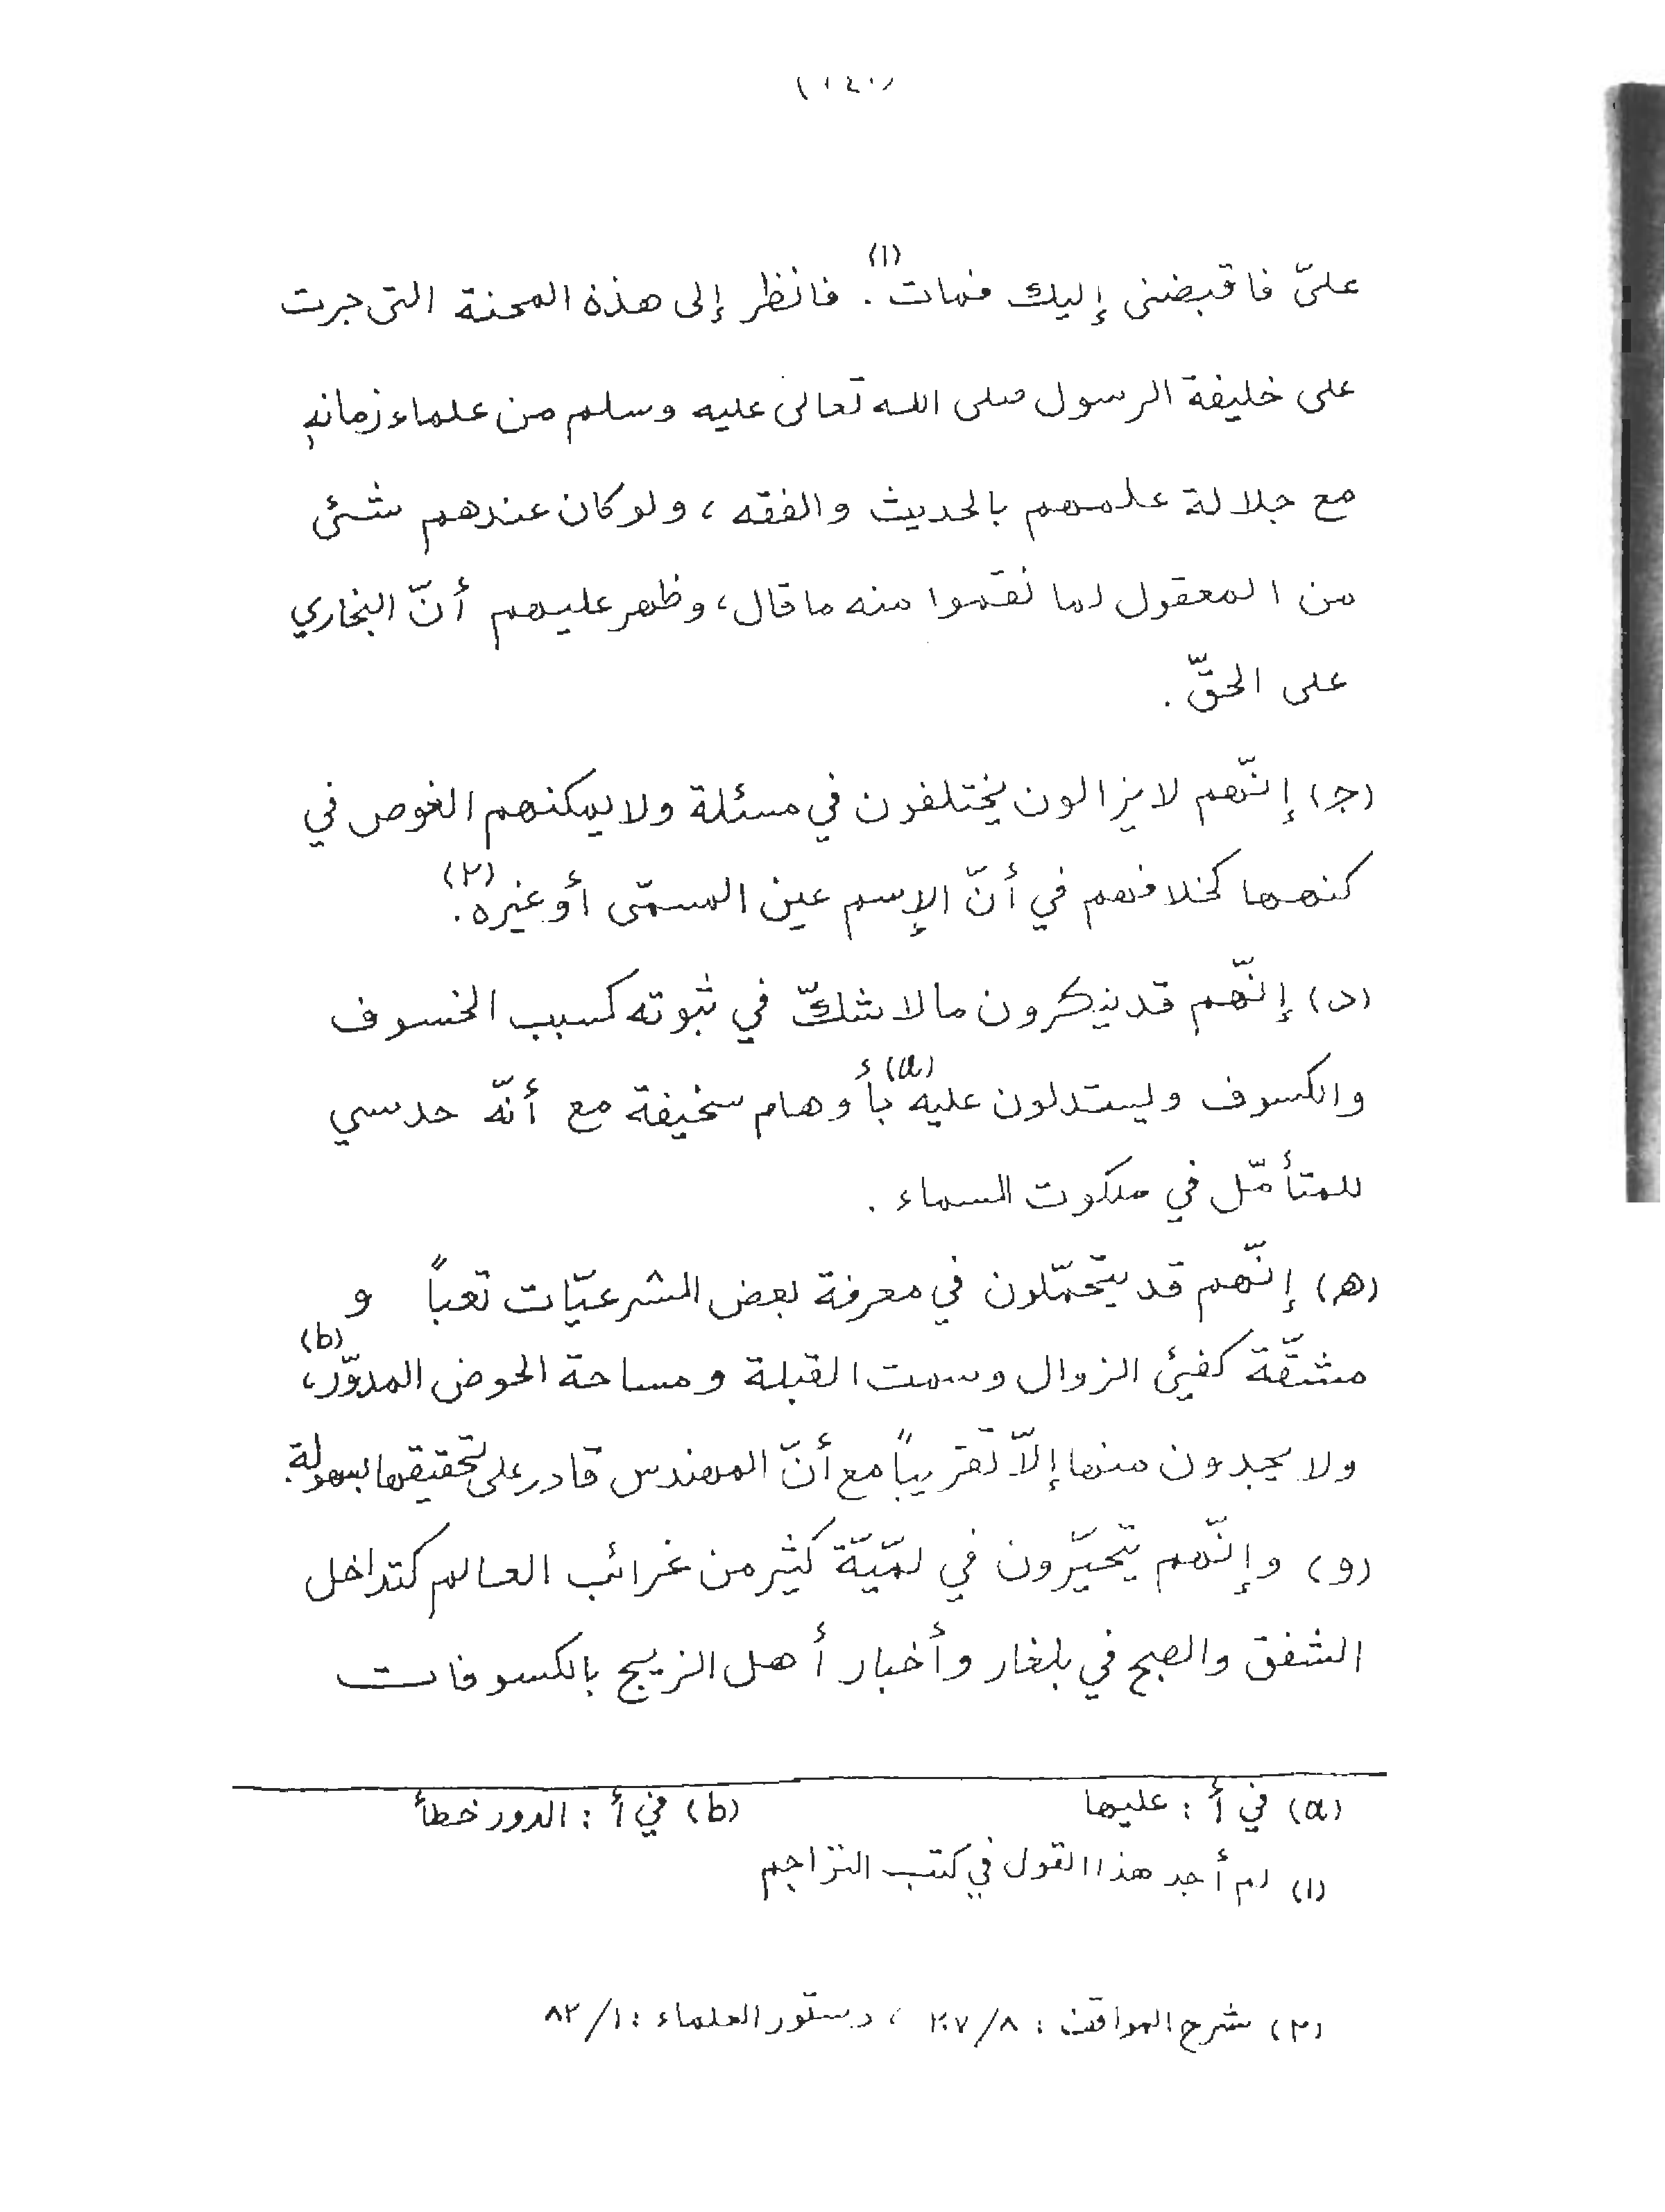 (١٤٠)
علىّ فاقبضنى إليك فمات(١). فانظر إلى هذة المحنة التى جرت
على خليفة الرسول صلى الله تعالى عليه وسلم من علماء زمانهٖ
مع جلالة علمهم بالحديث والفقه ، ولو كان عندهم شئى
من المعقول لما نقموا منه ما قال، وظهر عليهم أنّ البخاري
على الحقّ .
(ج) إنّهم لا يزالون يختلفون في مسئلة ولا يمكنهم الغوص في
كنهها كخلافهم في أنّ الإسم عين المسمّى أو غيره(٢).
(د) إنّهم قد ينكرون ما لا شكّ في ثبوته كسبب الخسوف
والكسوف ويستدلون عليه(a) بأوهام سخيفة مع أنّه حدسي
للمتأمّل في ملكوت السماء .
(ه) إنّهم قد يتحمّلون في معرفة بعض الشرعيّات تعباً و
مشقّة كفيئ الزوال وسمت القبلة ومساحة الحوض المدوّر(b)،
ولا يجدون منها إلاّ تقريباً مع أنّ المهندس قادر على تحقيقها بسهولة.
(و) وإنّهم يتحيّرون في لمّيّة كثير من غرائب العالم كتداخل
الشفق والصبح في بلغار وأخبار أهل الزيج بالكسوفات
(a) في أ : عليها (b) في أ : الدور خطأ
(١) لم أجد هذا القول في كتب التراجم
(٢) شرح المواقف : ٨/٢٠٧ ، دستور العلماء : ١/٨٢